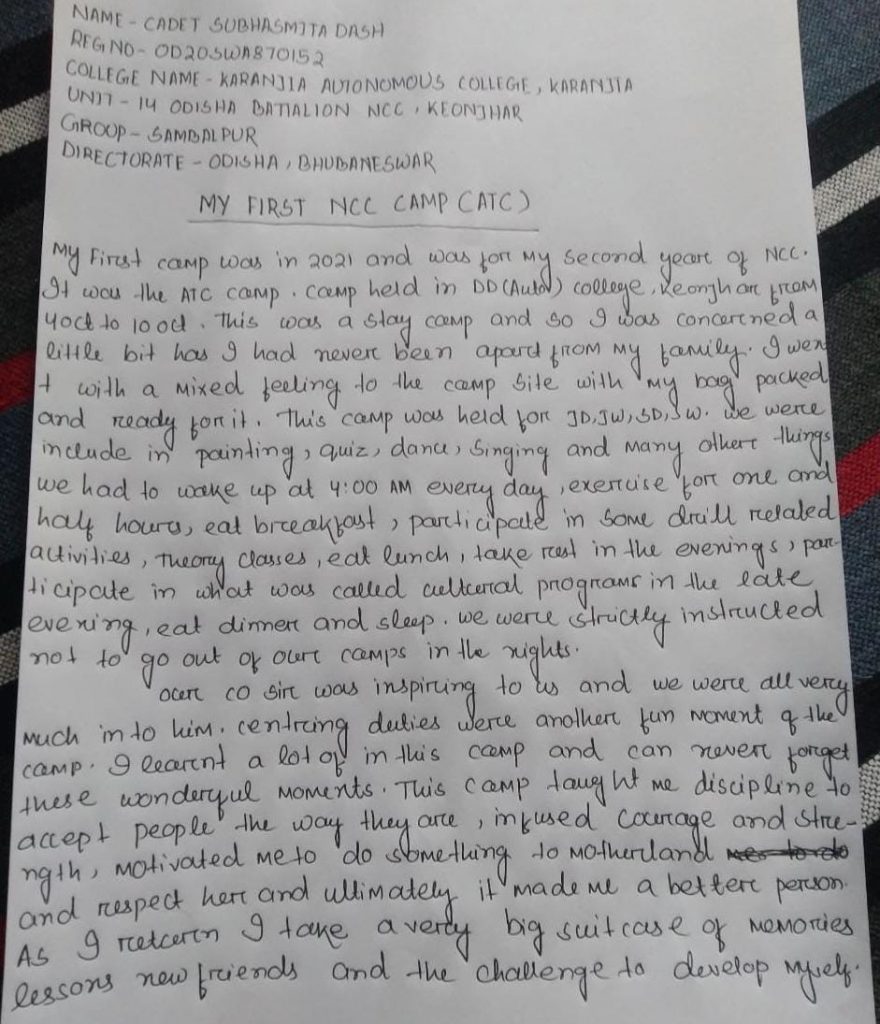 NAME - CADET SUBHASMITA DASH
REG NO - OD20SWA870152
COLLEGE NAME - KARANJIA AUTONOMOUS COLLEGE, KARANJIA
UNIT - 14 ODISHA BATTALION NCC, KEONJHAR
GROUP - SAMBALPUR
DIRECTORATE - ODISHA, BHUBANESWAR
MY FIRST NCC CAMP (ATC)
My First camp was in 2021 and was for my second year of NCC.
It was the ATC camp. camp held in DD (Auto) college, Keonjhar from
4 oct to 10 oct. This was a stay camp and so I was concerned a
little bit has I had never been apard from my family. I wen
t with a mixed feeling to the camp site with my bag packed
and ready for it. This camp was held for JD, JW, SD, SW. We were
include in painting, quiz, dance, Singing and many other things
we had to wake up at 4:00 AM every day, exercise for one and
half hours, eat breakfast, participate in some drill related
activities, Theory classes, eat lunch, take rest in the evenings, par-
ticipate in what was called cultural programs in the late
evening, eat dinner and sleep. we were strictly instructed
not to go out of our camps in the nights.
Our co sir was inspiring to us and we were all very
much in to him. centring duties were another fun moment of the
camp. I learnt a lot of in this camp and can never forget
these wonderful moments. This camp taught me discipline to
accept people the way they are, infused courage and stre-
ngth, motivated me to do something to motherland
and respect her and ultimately it made me a better person.
As I return I take a very big suitcase of memories
lessons new friends and the challenge to develop myself.